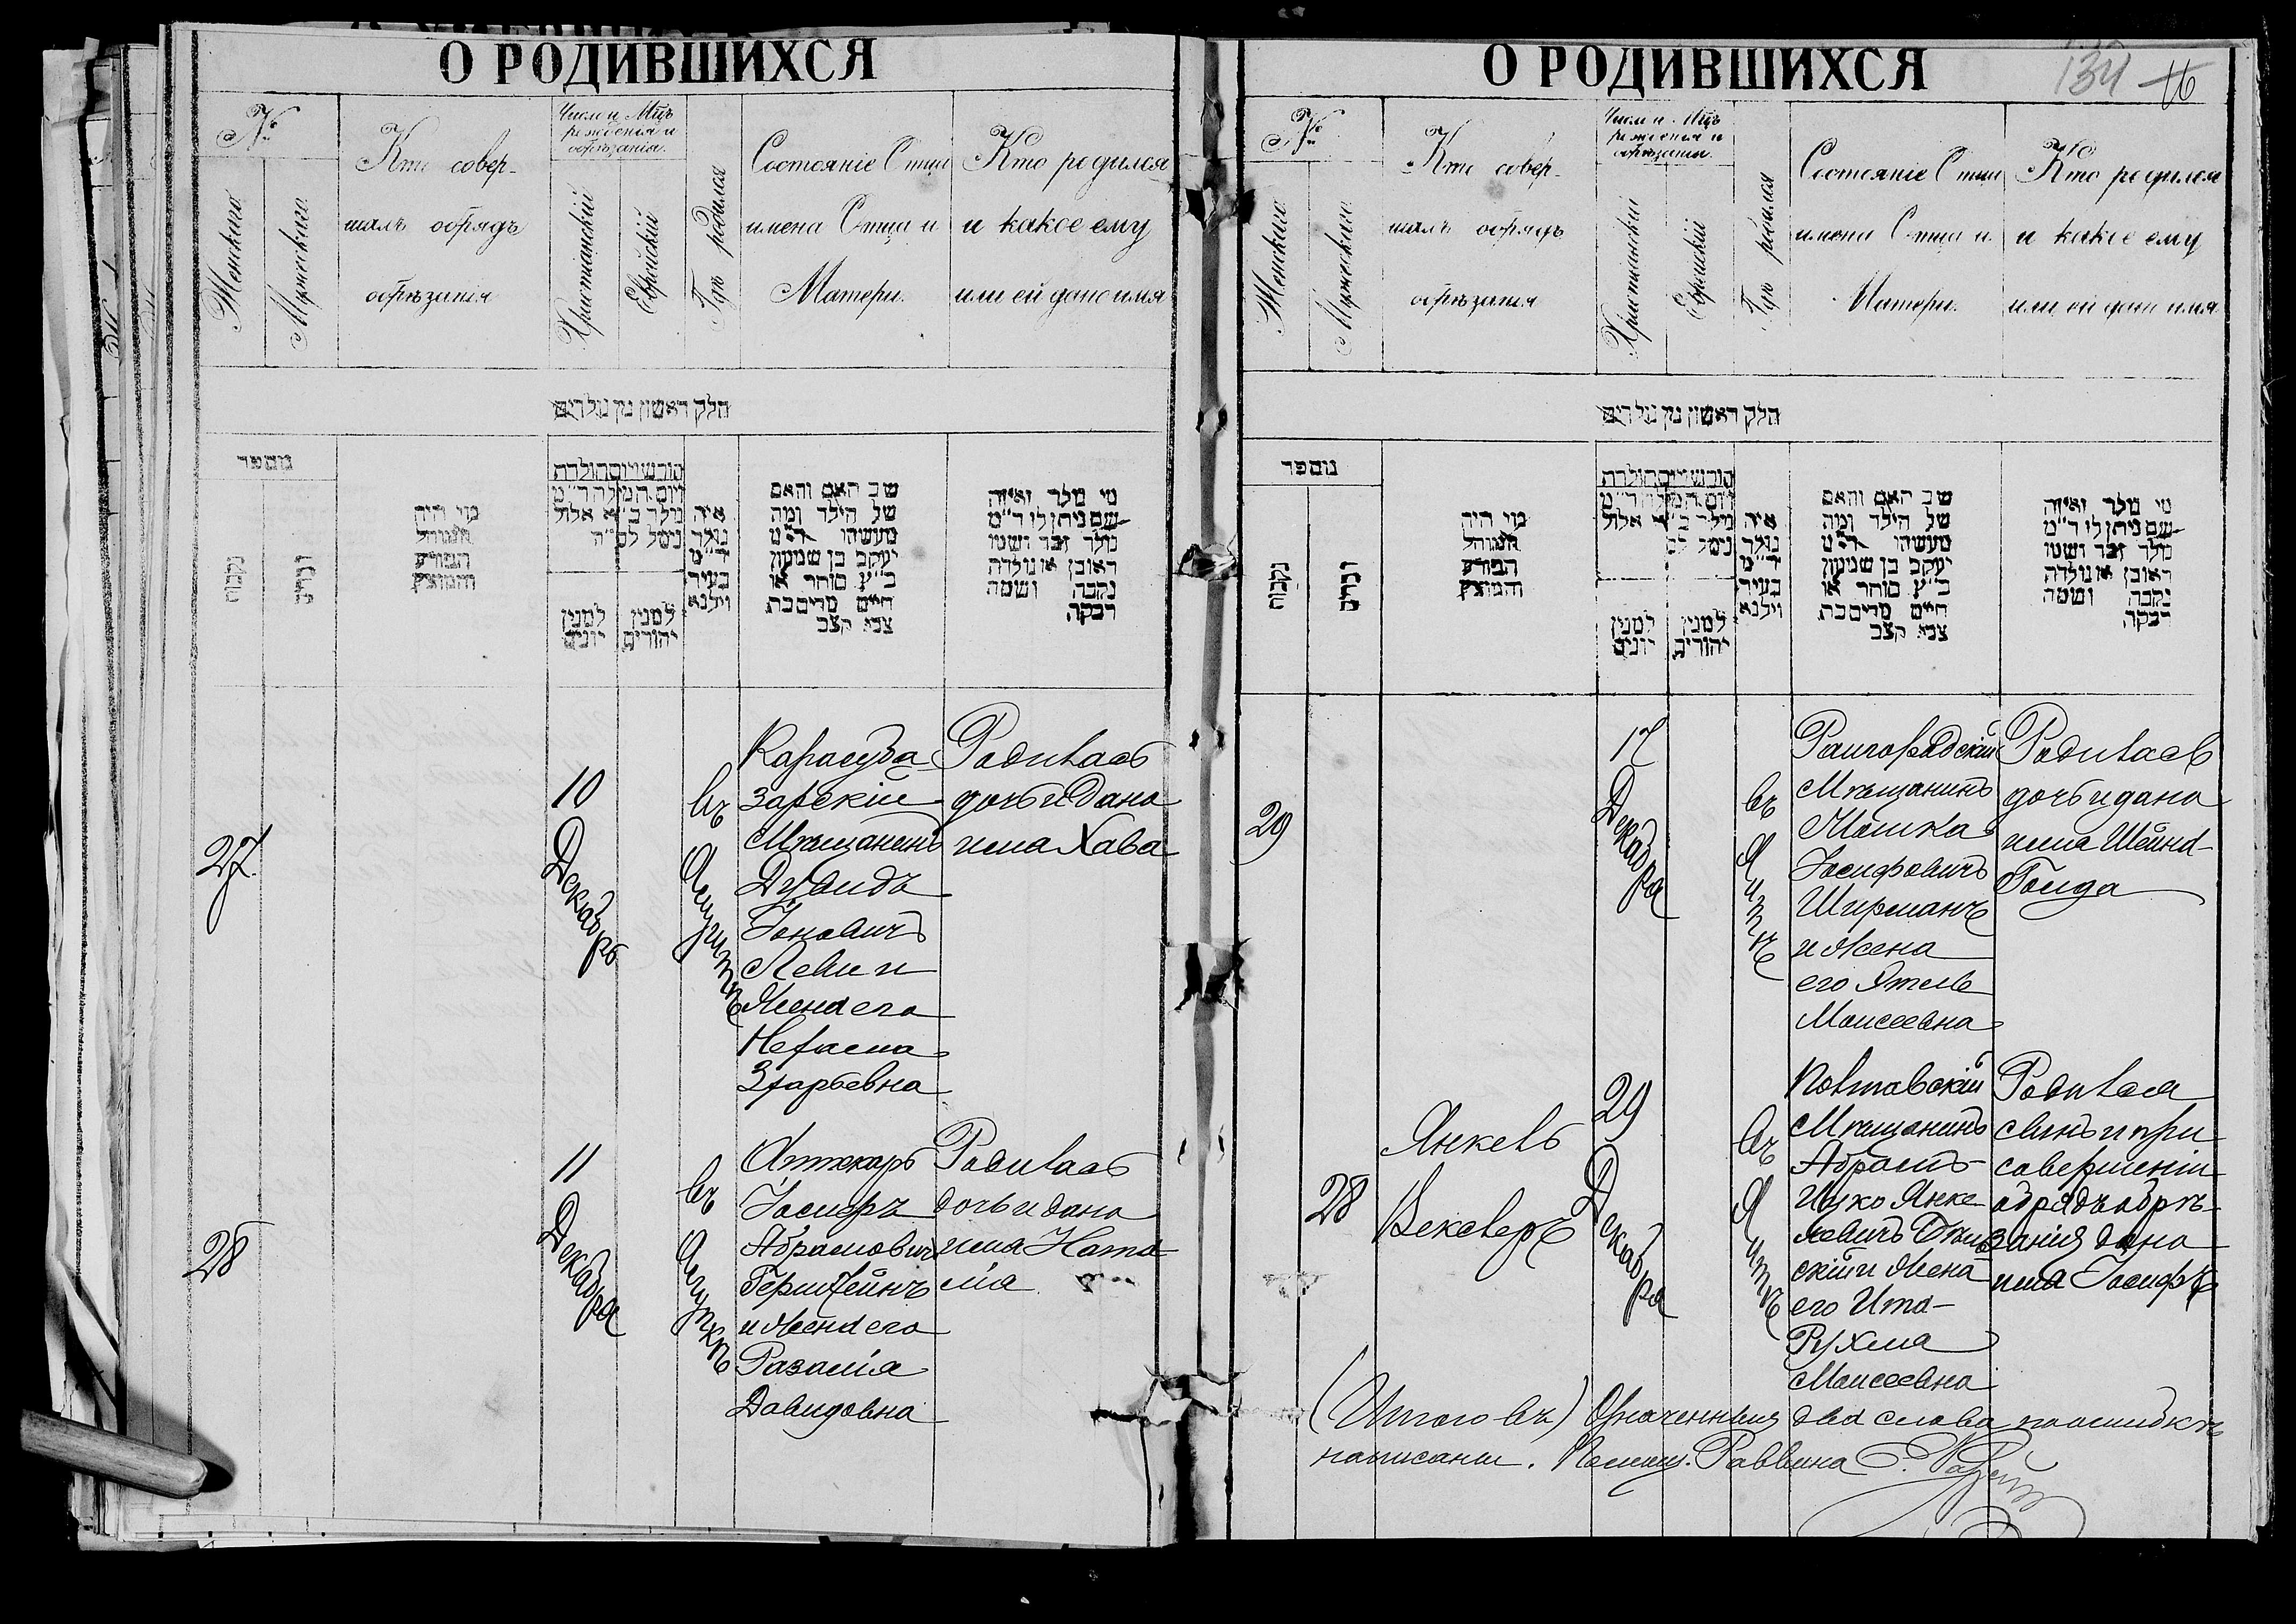 О РОДИВШИХСЯ
№
Женскаго
Мужскаго
Кто совер-
шалъ обрядъ
обрѣзанія
Число и Мцъ
рожденія и
обрѣзанія.
Христіанскій
Еврейскій
Гдѣ родился
Состояніе Отца
имена Отца и
Матери.
Кто родился
и какое ему
или ей дано имя
חלק ראשון מן נולדים
מספר
נקבות
זכרים
מי היה
המוהל
הפורע
והמוצץ
חודש ויום הולדת
ויום המילה ד״מ
מילד ב״א אלול
נימל לס״ה
למנין
יונים
למנין
יהודים
איה
נולד
ד״מ
בעיר
ווילנא
שב האם והאם
של הילד ומה
מעשיהו ד״מ
יעקב בן שמעון
ב״ע סוחר או
חיים מרים בת
צבי קצב
מי נולד ואיזה
שם ניתן לו ד״מ
נולד זכר ושמו
ראובן או נולדה
נקבה ושמה
רבקה
27.
10
Декабрь
въ
Карасуба-
зарскій
Мѣщанинъ
Дувидъ
Іоновичъ
Леви и
Жена его
Нехама
Зхарьевна
Родилась
дочь и дано
имя Хава
28
11
Декабря
въ
Аптекарь
Іосифъ
Абрамовичъ
Герштейнъ
и Жена его
Розалія
Давидовна
Родилась
дочь и дано
имя Ната-
лія
О РОДИВШИХСЯ
134
16
№
Женскаго
Мужскаго
Кто совер-
шалъ обрядъ
обрѣзанія
Число и Мцъ
рожденія и
обрѣзанія.
Христіанскій
Еврейскій
Гдѣ родился
Состояніе Отца
имена Отца и
Матери.
Кто родился
и какое ему
или ей дано имя
חלק ראשון מן נולדים
מספר
נקבות
זכרים
מי היה
המוהל
הפורע
והמוצץ
חודש ויום הולדת
ויום המילה ד״מ
מילד ב״א אלול
נימל לס
למנין
יונים
למנין
יהודים
איה
נולד
ד״מ
בעיר
ווילנא
שב האם והאם
של הילד ומה
מעשיהו ד״מ
יעקב בן שמעון
ב״ע סוחר או
חיים מרים בת
צבי קצב
מי נולד ואיזה
שם ניתן לו ד״מ
נולד זכר ושמו
ראובן או נולדה
נקבה ושמה
רבקה
29
17
Декабря
въ
Ялтѣ
Раигородскій
Мѣщанинъ
Мошка
Іосифовичъ
Ширманъ
и Жена
его Этель
Моисеевна
Родилась
дочь и дано
имя Шейна-
Гольда
28
Янкель
Векслеръ
29
Декабря
въ
Ялтѣ
Полтавскій
Мѣщанинъ
Абрамъ-
Ицко Янке-
левичъ
скій и Жена
его Ита-
Рухля
Моисеевна
Родился
сынъ и при
совершеніи
обряда обрѣ-
занія дано
имя Іосифъ
(Итого въ) Означенныя два слова по ошибкѣ
написаны. Помощ. Раввина